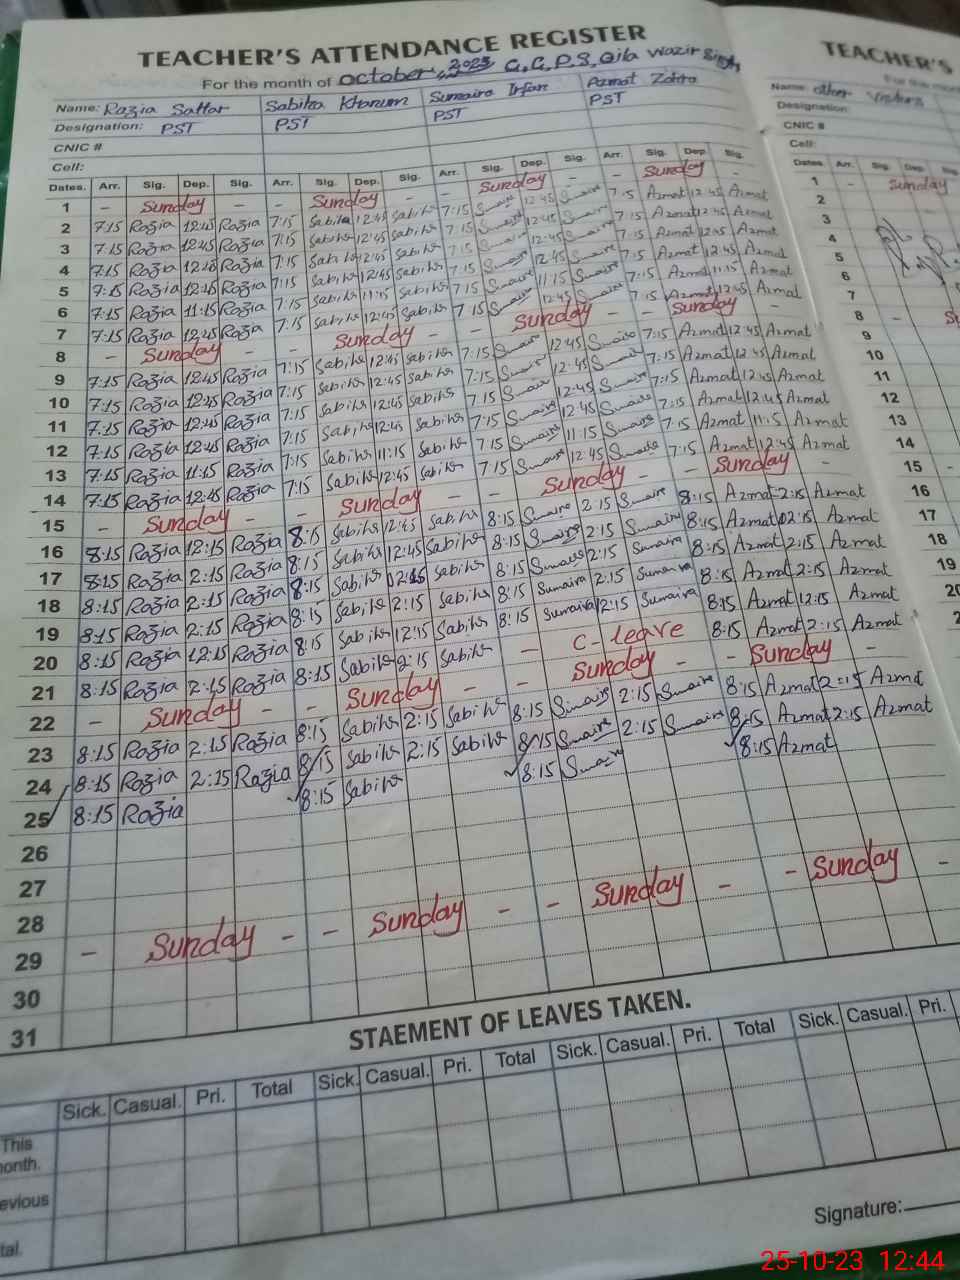 TEACHER'S ATTENDANCE REGISTER
For the month of October, 2023 G.G.P.S, Qila Wazir Singh
Name: Razia Sattar Sabiha Khanum Sumaira Irfan Azmat Zahra
Designation: PST PST PST PST
CNIC #
Cell:
Dates. Arr. Sig. Dep. Sig. Arr. Sig. Dep. Sig. Arr. Sig. Dep. Sig. Arr. Sig. Dep. Sig.
1 - Sunday - - Sunday - - Sunday - - Sunday -
2 7:15 Razia 12:45 Razia 7:15 Sabiha 12:45 Sabiha 7:15 Sumaira 12:45 Sumaira 7:15 Azmat 12:45 Azmat
3 7:15 Razia 12:45 Razia 7:15 Sabiha 12:45 Sabiha 7:15 Sumaira 12:45 Sumaira 7:15 Azmat 12:45 Azmat
4 7:15 Razia 12:45 Razia 7:15 Sabiha 12:45 Sabiha 7:15 Sumaira 12:45 Sumaira 7:15 Azmat 12:45 Azmat
5 7:15 Razia 12:45 Razia 7:15 Sabiha 12:45 Sabiha 7:15 Sumaira 12:45 Sumaira 7:15 Azmat 12:45 Azmat
6 7:15 Razia 11:15 Razia 7:15 Sabiha 11:15 Sabiha 7:15 Sumaira 11:15 Sumaira 7:15 Azmat 11:15 Azmat
7 7:15 Razia 12:45 Razia 7:15 Sabiha 12:45 Sabiha 7:15 Sumaira 12:45 Sumaira 7:15 Azmat 12:45 Azmat
8 - Sunday - - Sunday - - Sunday - - Sunday -
9 7:15 Razia 12:45 Razia 7:15 Sabiha 12:45 Sabiha 7:15 Sumaira 12:45 Sumaira 7:15 Azmat 12:45 Azmat
10 7:15 Razia 12:45 Razia 7:15 Sabiha 12:45 Sabiha 7:15 Sumaira 12:45 Sumaira 7:15 Azmat 12:45 Azmat
11 7:15 Razia 12:45 Razia 7:15 Sabiha 12:45 Sabiha 7:15 Sumaira 12:45 Sumaira 7:15 Azmat 12:45 Azmat
12 7:15 Razia 12:45 Razia 7:15 Sabiha 12:45 Sabiha 7:15 Sumaira 12:45 Sumaira 7:15 Azmat 12:45 Azmat
13 7:15 Razia 11:15 Razia 7:15 Sabiha 11:15 Sabiha 7:15 Sumaira 11:15 Sumaira 7:15 Azmat 11:15 Azmat
14 7:15 Razia 12:45 Razia 7:15 Sabiha 12:45 Sabiha 7:15 Sumaira 12:45 Sumaira 7:15 Azmat 12:45 Azmat
15 - Sunday - - Sunday - - Sunday - - Sunday -
16 8:15 Razia 12:15 Razia 8:15 Sabiha 12:45 Sabiha 8:15 Sumaira 2:15 Sumaira 8:15 Azmat 2:15 Azmat
17 8:15 Razia 2:15 Razia 8:15 Sabiha 12:45 Sabiha 8:15 Sumaira 2:15 Sumaira 8:15 Azmat 02:15 Azmat
18 8:15 Razia 2:15 Razia 8:15 Sabiha 02:15 Sabiha 8:15 Sumaira 2:15 Sumaira 8:15 Azmat 2:15 Azmat
19 8:15 Razia 2:15 Razia 8:15 Sabiha 2:15 Sabiha 8:15 Sumaira 2:15 Sumaira 8:15 Azmat 2:15 Azmat
20 8:15 Razia 12:15 Razia 8:15 Sabiha 12:15 Sabiha 8:15 Sumaira 12:15 Sumaira 8:15 Azmat 12:15 Azmat
21 8:15 Razia 2:15 Razia 8:15 Sabiha 2:15 Sabiha - C-leave 8:15 Azmat 2:15 Azmat
22 - Sunday - - Sunday - - Sunday - - Sunday -
23 8:15 Razia 2:15 Razia 8:15 Sabiha 2:15 Sabiha 8:15 Sumaira 2:15 Sumaira 8:15 Azmat 2:15 Azmat
24 8:15 Razia 2:15 Razia 8:15 Sabiha 2:15 Sabiha 8:15 Sumaira 2:15 Sumaira 8:15 Azmat 2:15 Azmat
25 8:15 Razia 8:15 Sabiha 8:15 Sumaira 8:15 Azmat
26
27
28
29 - Sunday - - Sunday - - Sunday - - Sunday -
30
31
STAEMENT OF LEAVES TAKEN.
Sick. Casual. Pri. Total Sick. Casual. Pri. Total Sick. Casual. Pri. Total Sick. Casual. Pri.
This
onth.
evious
tal.
Signature:
TEACHER'S
Name: Other Visitors
Designation:
CNIC #
Cell:
Dates. Arr. Sig. Dep.
1 - Sunday
2
3
4
5
6
7
8 -
9
10
11
12
13
14
15 -
16
17
18
19
25-10-23 12:44